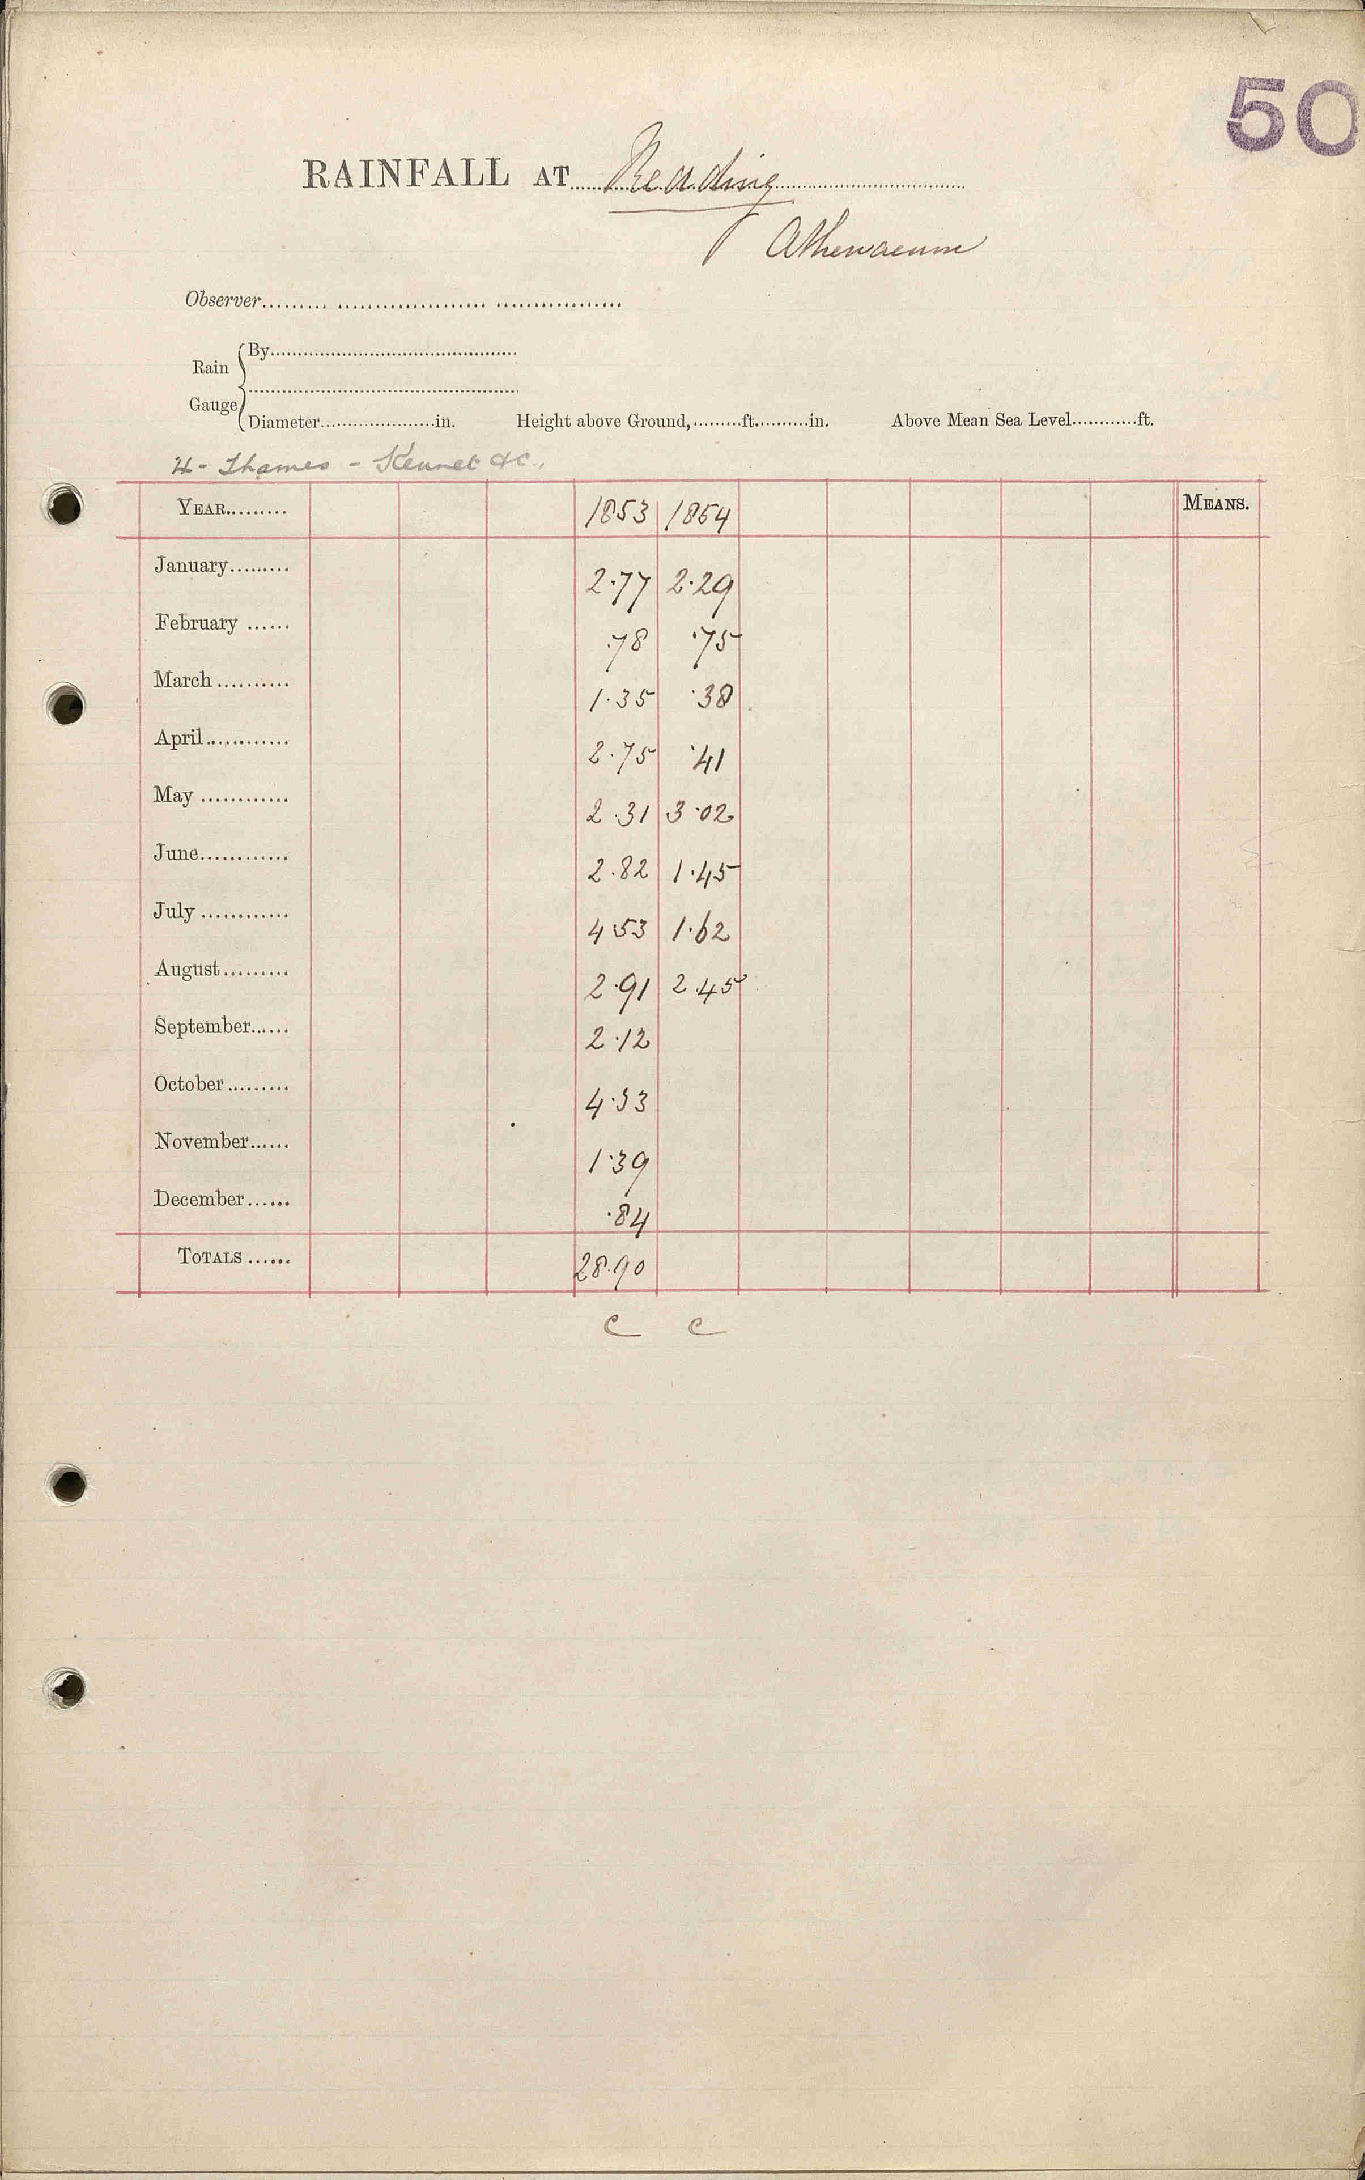 50
RAINFALL AT Reading
Athenaeum
Observer
Rain Gauge
By
Diameter in. Height above Ground, ft. in. Above Mean Sea Level ft.
4 - Thames - Kennet &c.
YEAR 1853 1854 MEANS.
January 2.77 2.29
February .78 .75
March 1.35 .38
April 2.75 .41
May 2.31 3.02
June 2.82 1.45
July 4.53 1.62
August 2.91 2.45
September 2.12
October 4.33
November 1.39
December .84
TOTALS 28.90
c c